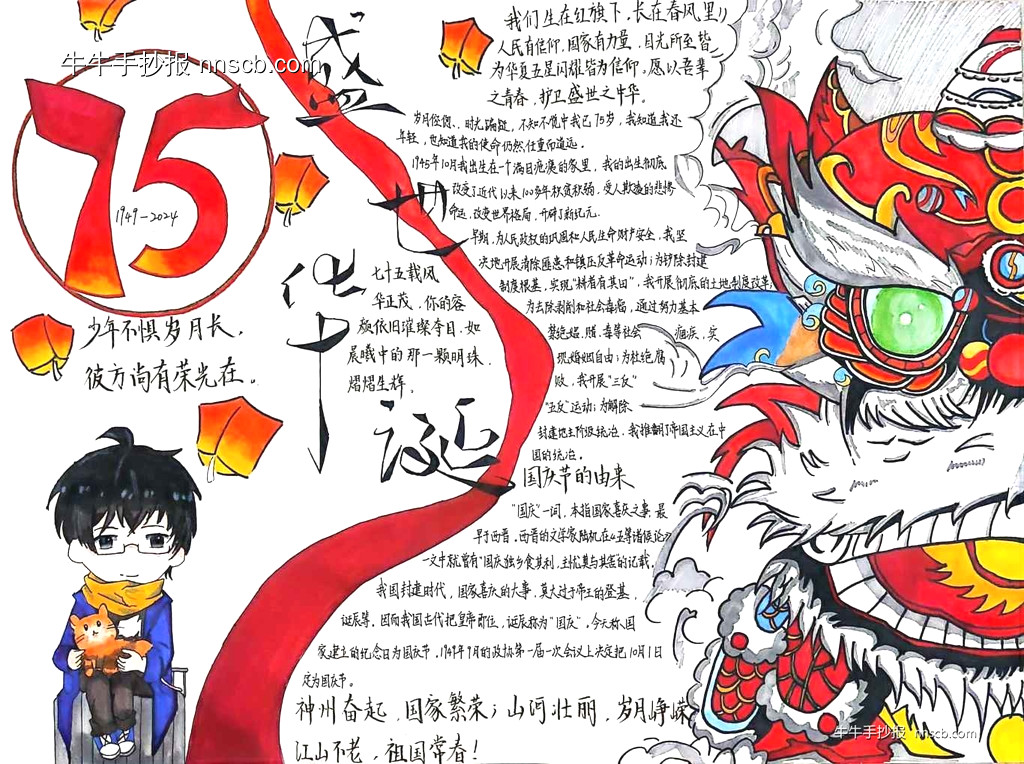 牛牛手抄报 nnscb.com
75
1949-2024
少年不惧岁月长，
彼方尚有荣光在。
盛世华诞
我们生在红旗下，长在春风里
人民有信仰，国家有力量，目光所至皆
为华夏五星闪耀皆为信仰。愿以吾辈
之青春，护卫盛世之中华。
岁月倥偬，时光蹁跹，不知不觉中我已75岁，我知道我还
年轻，也知道我的使命仍然任重而道远。
1945年10月我出生在一个满目疮痍的家里，我的出生彻底
改变了近代以来100多年积贫积弱，受人欺凌的悲惨
命运，改变世界格局，开辟了新纪元。
早期，为人民政权的巩固和人民生命财产安全，我坚
决地开展清除匪患和镇压反革命运动；为铲除封建
制度根基，实现"耕者有其田"，我开展彻底的土地制度改革，
为去除剥削和社会毒瘤，通过努力基本
禁绝娼、赌、毒等社会 痼疾，实
现婚姻自由；为杜绝腐
败，我开展"三反"
"五反"运动；为解除
封建地主阶级统治，我推翻了帝国主义在中
国的统治。
七十五载风
华正茂，你的容
颜依旧璀璨夺目，如
晨曦中的那一颗明珠，
熠熠生辉。
国庆节的由来
"国庆"一词，本指国家喜庆之事，最
早于西晋。西晋的文学家陆机在《五等诸侯论》
一文中就曾有"国庆独飨其利，主忧莫与其害"的记载，
我国封建时代，国家喜庆的大事，莫大过于帝王的登基，
诞辰等。因而我国古代把皇帝即位、诞辰称为"国庆"，今天称国
家建立的纪念日为国庆节，1949年9月的政协第一届一次会议上决定把10月1日
定为国庆节。
神州奋起，国家繁荣；山河壮丽，岁月峥嵘
江山不老，祖国常春！
牛牛手抄报 nnscb.com